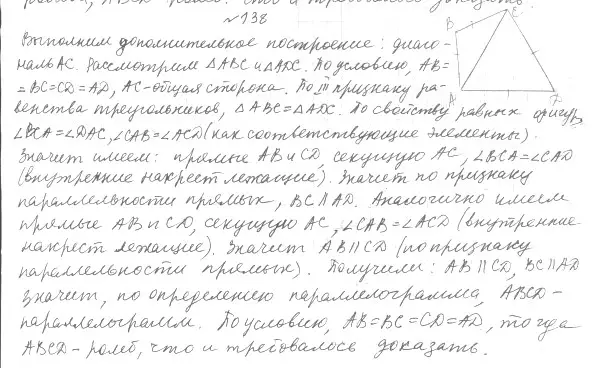 ромб, что и требовалось доказать.
№138
Выполним дополнительное построение: диаго-
наль AC. Рассмотрим △ABC и △ADC. По условию, AB=
=BC=CD=AD, AC-общая сторона. По III признаку ра-
венства треугольников, △ABC=△ADC. По свойству равных фигур,
∠BCA=∠DAC, ∠CAB=∠ACD (как соответствующие элементы).
Значит имеем: прямые AB и CD, секущую AC, ∠BCA=∠CAD
(внутренние накрест лежащие). Значит по признаку
параллельности прямых, BC||AD. Аналогично имеем
прямые AB и CD, секущую AC, ∠CAB=∠ACD (внутренние
накрест лежащие). Значит AB||CD (по признаку
параллельности прямых). Получили: AB||CD, BC||AD
Значит, по определению параллелограмма, ABCD-
параллелограмм. По условию, AB=BC=CD=AD, тогда
ABCD-ромб, что и требовалось доказать.
B
C
A
D